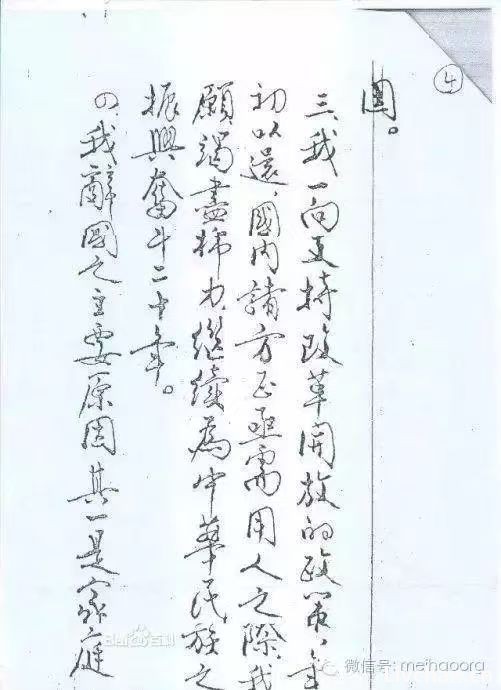 ④
國。
三、我一向支持改革開放的政策,年
初以還,國內諸方正亟需用人之際,我
願竭盡棉力繼續為中華民族之
振興奮斗二十年。
四、我辭國之主要原因其一是家庭
Bai百科
微信号: meihaoorg